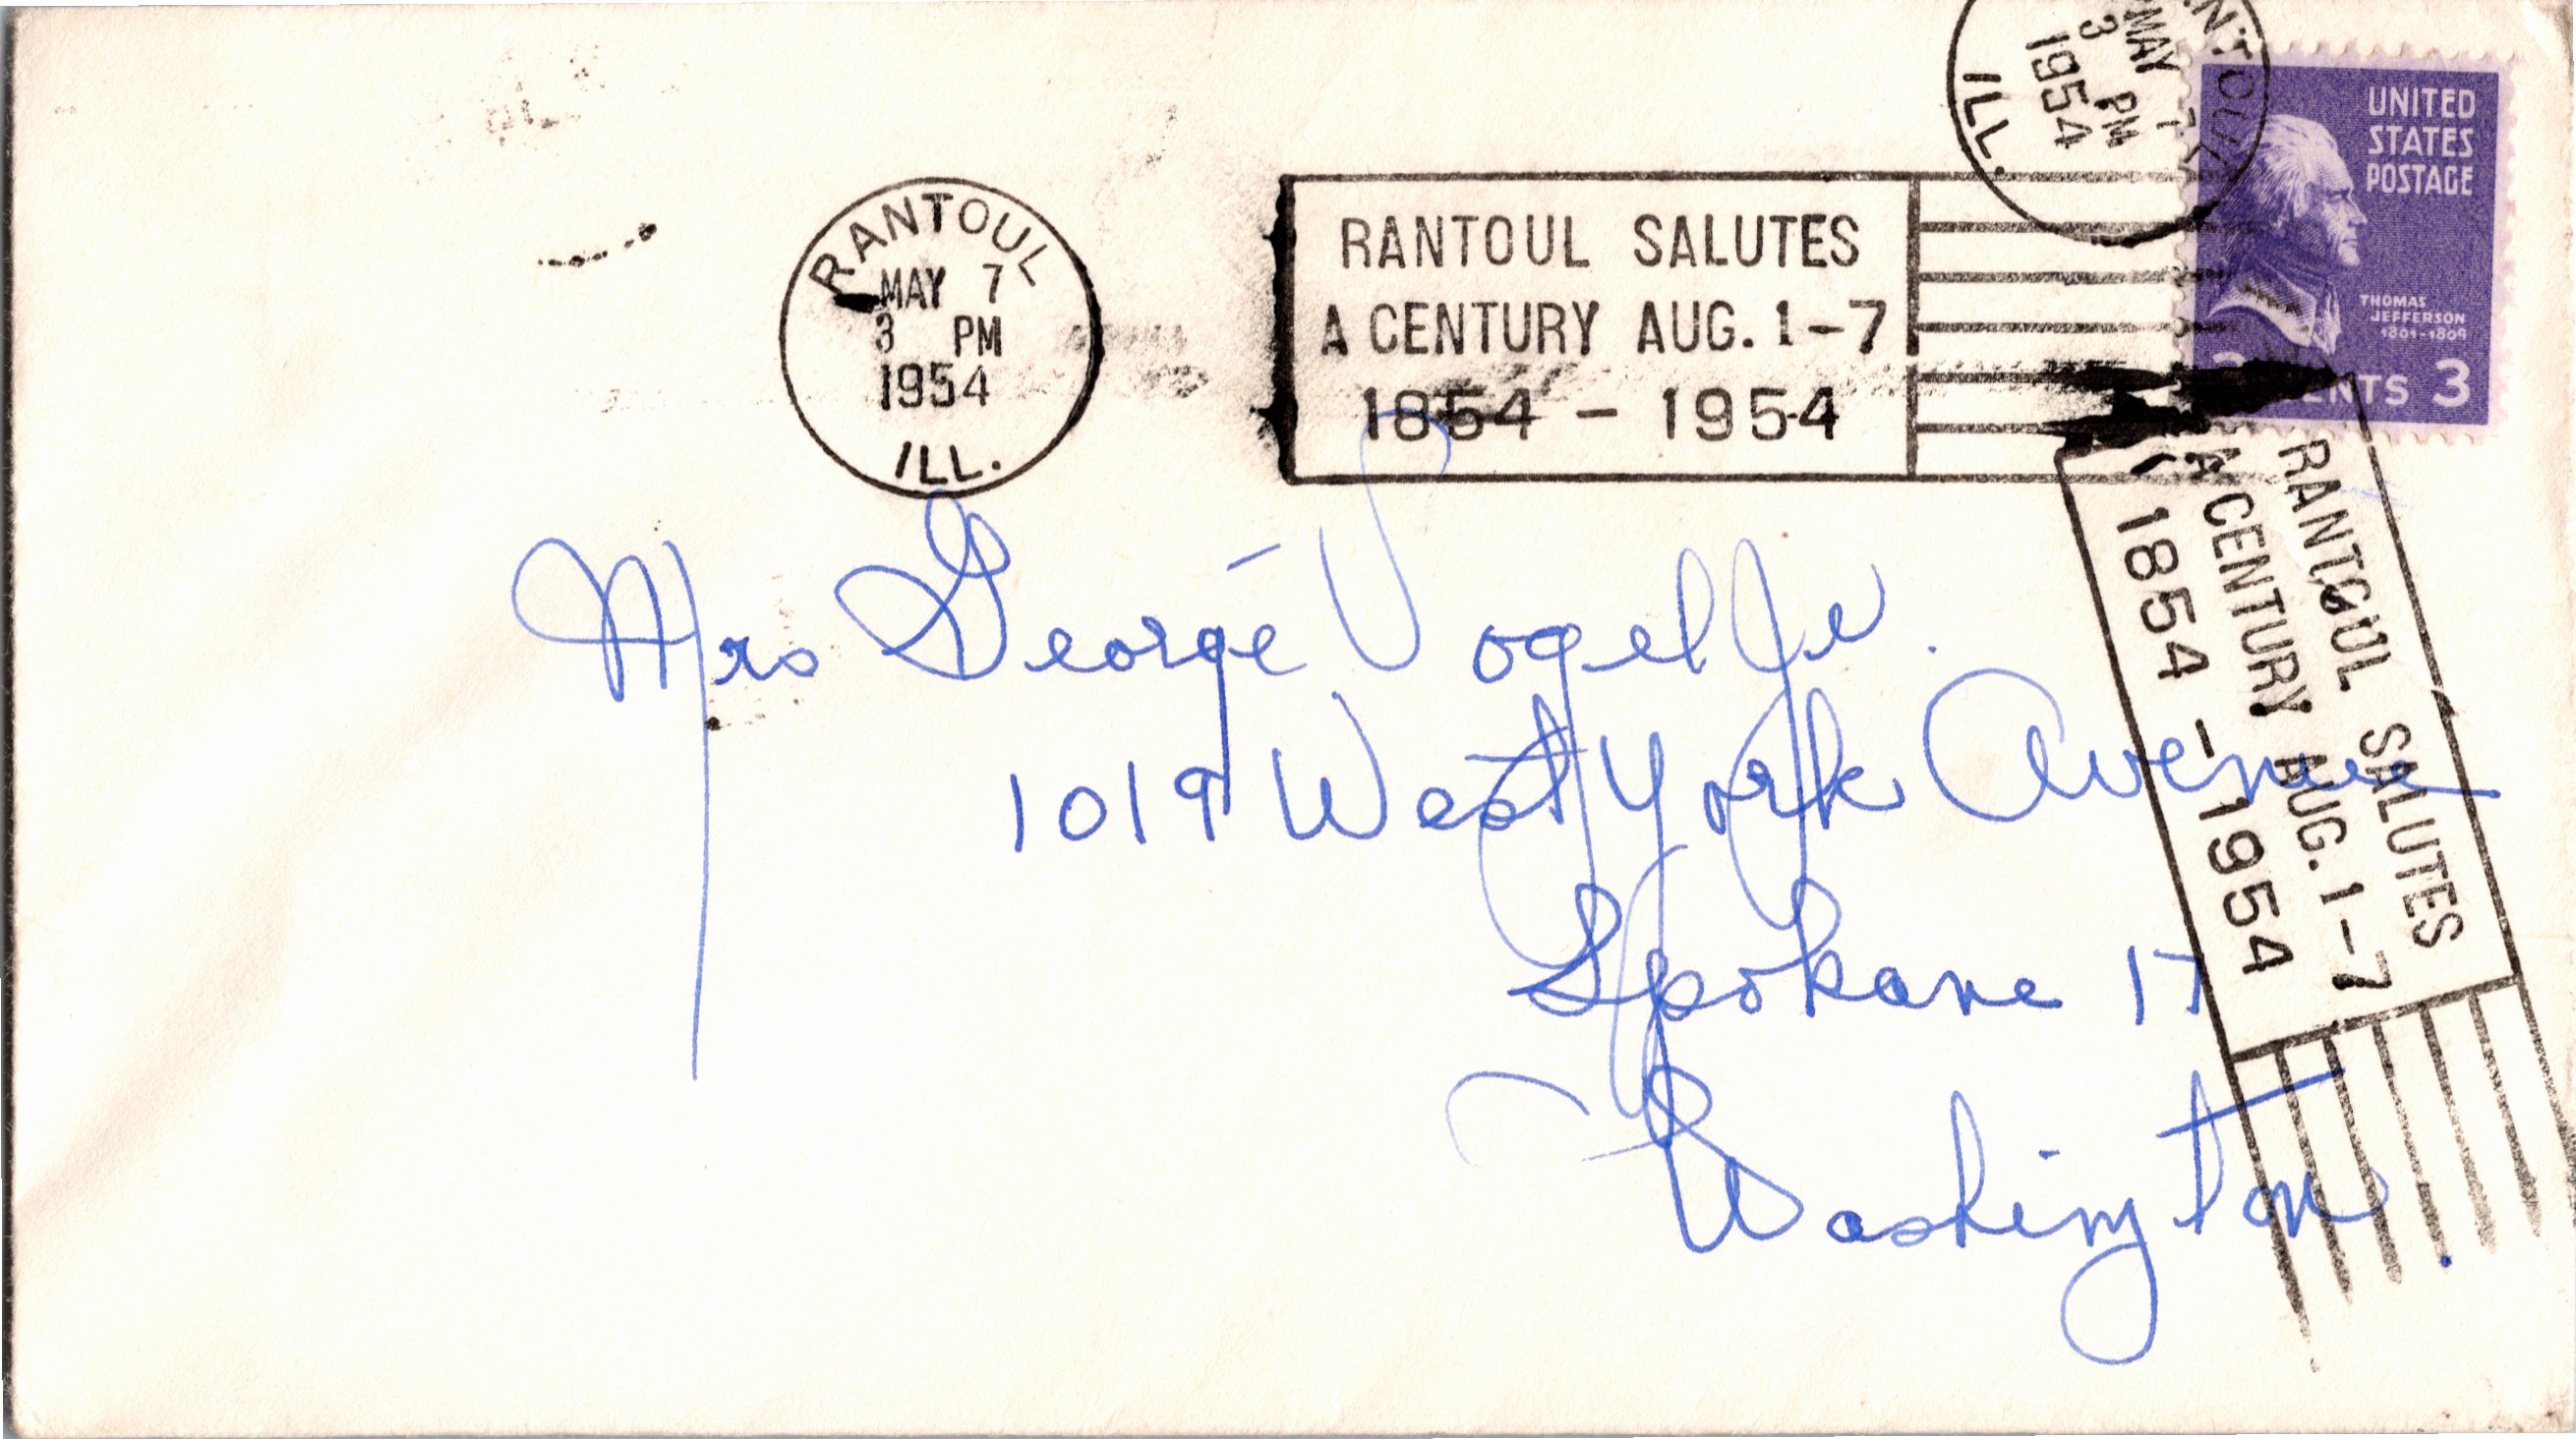 RANTOUL
MAY 7
3 PM
1954
ILL.
RANTOUL SALUTES
A CENTURY AUG. 1-7
1854 - 1954
NTOUL
MAY 7
3 PM
1954
ILL.
UNITED
STATES
POSTAGE
THOMAS
JEFFERSON
1801-1809
3 CENTS 3
RANTOUL SALUTES
A CENTURY AUG. 1-7
1854 - 1954
Mrs George Vogel Jr.
1019 West York Avenue
Spokane 17
Washington.